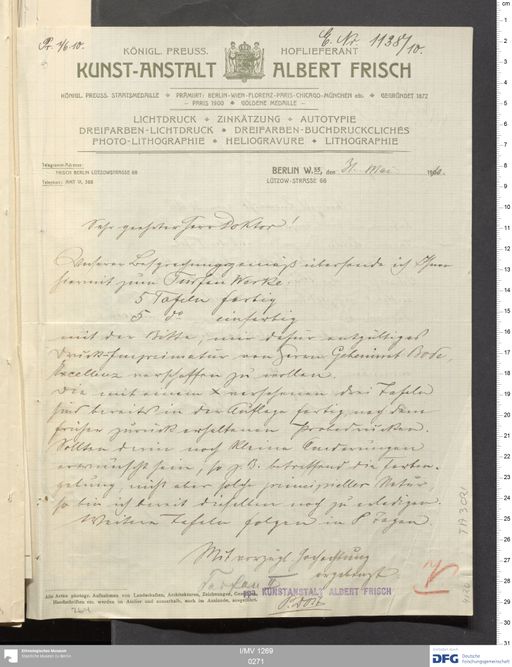 Pr. 4/6.10.
E. Nr. 1138/10.
KÖNIGL. PREUSS. HOFLIEFERANT
KUNST-ANSTALT ALBERT FRISCH
KÖNIGL. PREUSS. STAATSMEDAILLE ✦ PRÄMIIRT: BERLIN-WIEN-FLORENZ-PARIS-CHICAGO-MÜNCHEN etc. ✦ GEGRÜNDET 1872
– PARIS 1900 ✦ GOLDENE MEDAILLE –
LICHTDRUCK ✦ ZINKÄTZUNG ✦ AUTOTYPIE
DREIFARBEN-LICHTDRUCK ✦ DREIFARBEN-BUCHDRUCKCLICHES
PHOTO-LITHOGRAPHIE ✦ HELIOGRAVURE ✦ LITHOGRAPHIE
Telegramm-Adresse:
FRISCH BERLIN LÜTZOWSTRASSE 66
Telephon: AMT VI, 388
BERLIN W.35, den 31. Mai 1910.
LÜTZOW-STRASSE 66
Sehr geehrter Herr Doktor!
Unserer Besprechung gemäß übersende ich Ihnen
hiermit zum Turfan Werke:
5 Tafeln fertig
5 do einfertig
mit der Bitte, mir dafür entgültiges
Druck-Imprimatur von Herrn Geheimrat Bode,
Excellenz verschaffen zu wollen.
Die mit einem X versehenen drei Tafeln
sind bereits in der Auflage fertig nach dem
früher zurück erhaltenen Probedrucken.
Sollten darin noch kleine Änderungen
erwünscht sein, so z. B. betreffend die Farben-
gebung, nicht aber solche principieller Natur,
so bin ich bereit dieselben noch zu erledigen.
Weitere Tafeln folgen in 8 Tagen.
Mit vorzügl. Hochachtung
ergebenst
Turfan
ppa. KUNSTANSTALT ALBERT FRISCH
Alle Arten photogr. Aufnahmen von Landschaften, Architekturen, Zeichnungen,
Handschriften etc. werden im Atelier und ausserhalb, auch im Auslande, ausgeführt.
TA 302
Ethnologisches Museum
Staatliche Museen zu Berlin
I/MV 1269
0271
DFG Deutsche
Forschungsgemeinschaft